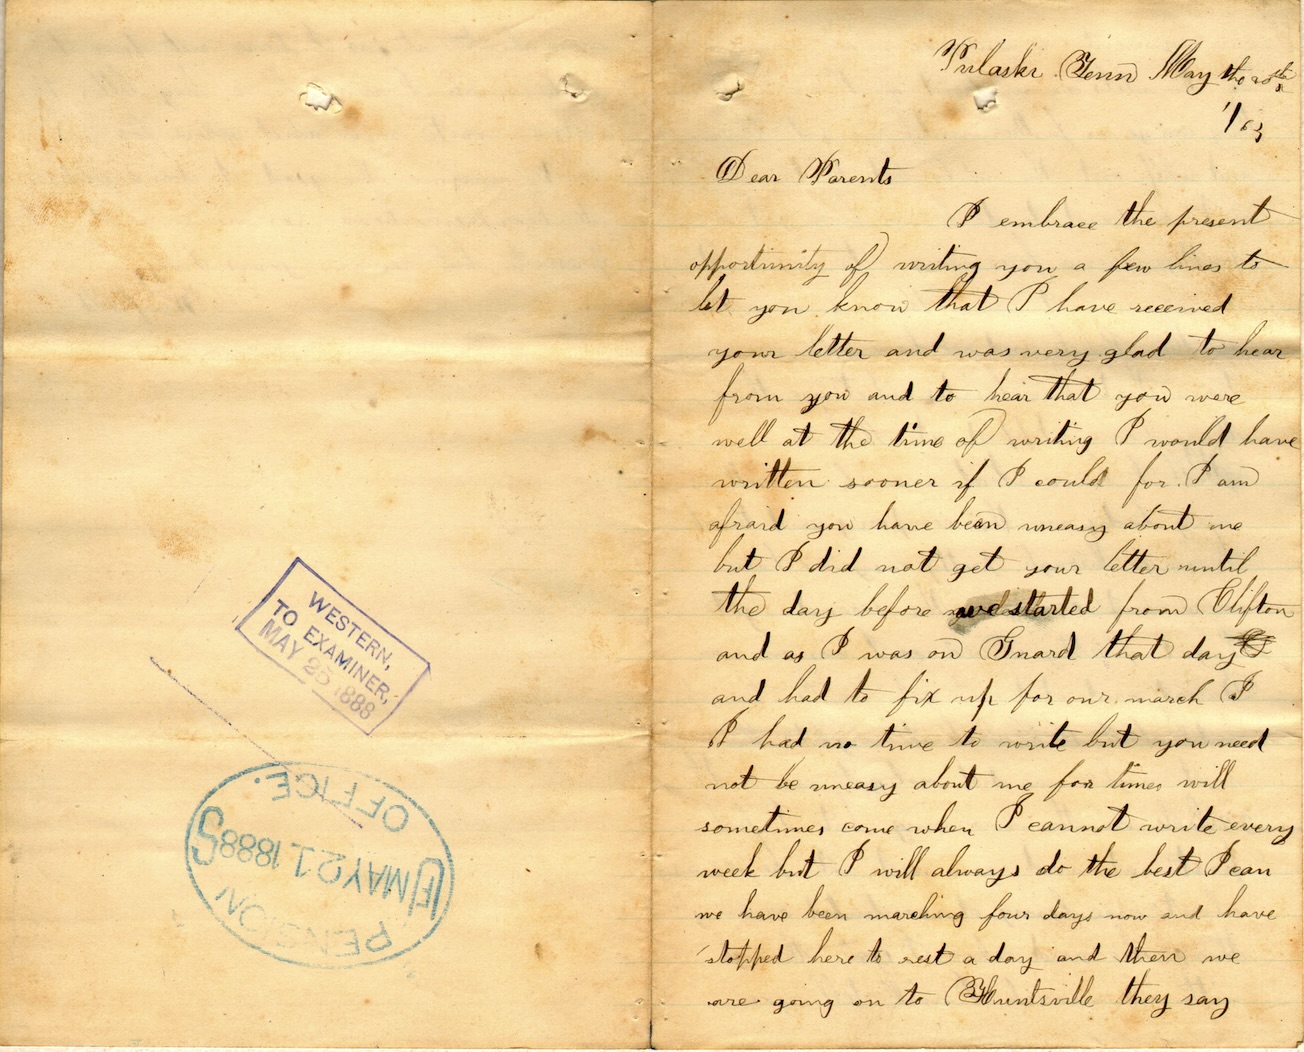 WESTERN,
TO EXAMINER,
MAY 25 1888
PENSION
U MAY 21 1888 S
OFFICE.
Pulaski Tenn May the
Dear Parents
I embrace the present
opportunity of writing you a few lines to
let you know that I have received
your letter and was very glad to hear
from you and to hear that you were
well at the time of writing I would have
written sooner if I could for I am
afraid you have been uneasy about me
but I did not get your letter until
the day before we started from Clifton
and as I was on Guard that day
and had to fix up for our march I
I had no time to write but you need
not be uneasy about me for times will
sometimes come when I cannot write every
week but I will always do the best I can
we have been marching four days now and have
stopped here to rest a day and then we
are going on to Huntsville they say